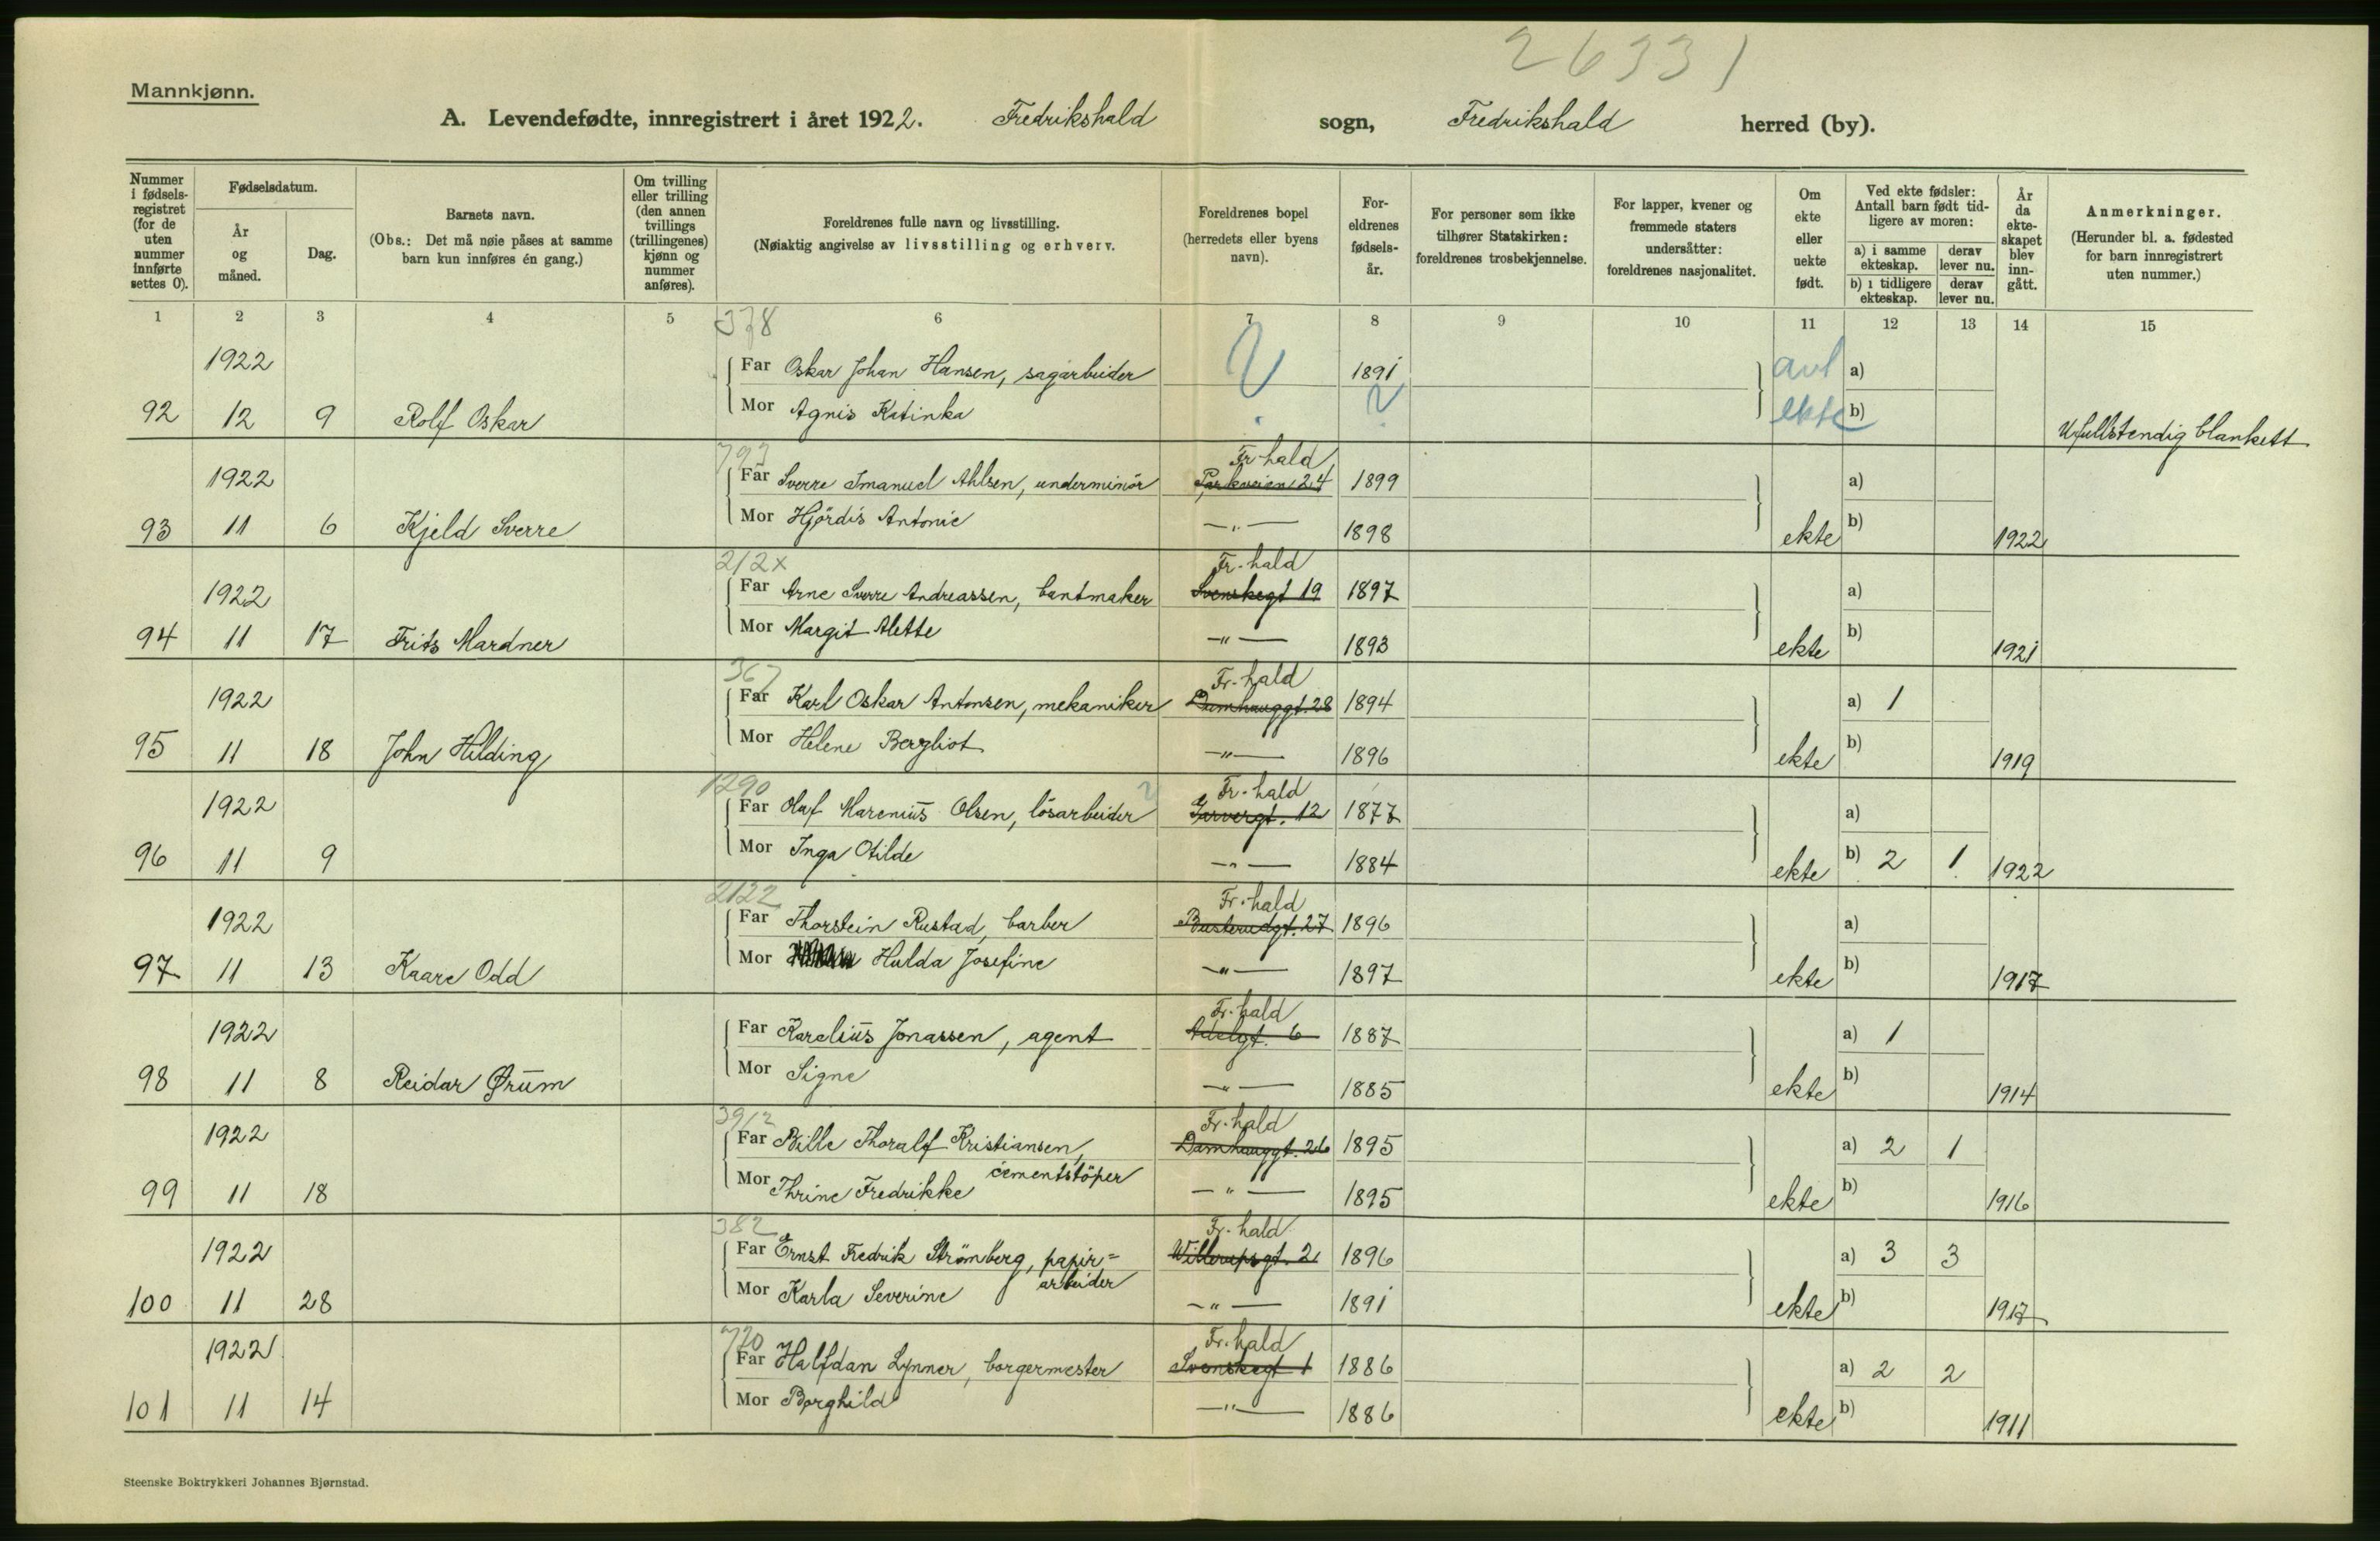 26331
Mannkjønn.
A. Levendefødte, innregistrert i året 1922. Fredrikshald sogn, Fredrikshald herred (by).
Nummer i fødsels-registret (for de uten nummer innførte settes 0).
Fødselsdatum.
År og måned.
Dag.
Barnets navn.
(Obs.: Det må nøie påses at samme barn kun innføres én gang.)
Om tvilling eller trilling (den annen tvillings (trillingenes) kjønn og nummer anføres).
Foreldrenes fulle navn og livsstilling.
(Nøiaktig angivelse av livsstilling og erhverv.
Foreldrenes bopel (herredets eller byens navn).
For-eldrenes fødsels-år.
For personer som ikke tilhører Statskirken: foreldrenes trosbekjennelse.
For lapper, kvener og fremmede staters undersåtter: foreldrenes nasjonalitet.
Om ekte eller uekte født.
Ved ekte fødsler: Antall barn født tid-ligere av moren:
a) i samme ekteskap.
derav lever nu.
b) i tidligere ekteskap.
derav lever nu.
År da ekte-skapet blev inn-gått.
Anmerkninger.
(Herunder bl. a. fødested for barn innregistrert uten nummer.)
1 2 3 4 5 6 7 8 9 10 11 12 13 14 15
378
1922 Far Oskar Johan Hansen, sagarbeider ? 1891 avl a)
92 12 9 Rolf Oskar Mor Agnis Katinka ? ekte b) Ufullstendig blankett
793 Fr-hald
1922 Far Sverre Imanuel Ahlsen, underminör Parkveien 24 1899 a)
93 11 6 Kjeld Sverre Mor Hjördis Antonie —"— 1898 ekte b) 1922
212x Fr-hald
1922 Far Arne Sverre Andreassen, bantmaker Svenskegt 19 1897 a)
94 11 17 Frits Mardner Mor Margit Alette —"— 1893 ekte b) 1921
367 Fr-hald
1922 Far Karl Oskar Antonsen, mekaniker Damhauggt. 28 1894 a) 1
95 11 18 John Hilding Mor Helene Bergliot —"— 1896 ekte b) 1919
1290 Fr-hald
1922 Far Olaf Marenius Olsen, lösarbeider ? Garvergt. 12 1877 a)
96 11 9 Mor Inga Otilde —"— 1884 ekte b) 2 1 1922
2122 Fr-hald
1922 Far Thorstein Rustad, barber Busterudgt. 27 1896 a)
97 11 13 Kaare Odd Mor Hulda Josefine —"— 1897 ekte b) 1917
Fr-hald
1922 Far Karelius Jonassen, agent Adelgt. 6 1887 a) 1
98 11 8 Reidar Ørum Mor Signe —"— 1885 ekte b) 1914
3912 Fr-hald
1922 Far Bille Thoralf Kristiansen, Damhauggt. 26 1895 a) 2 1
cementstöper
99 11 18 Mor Thrine Fredrikke —"— 1895 ekte b) 1916
382 Fr-hald
1922 Far Ernst Fredrik Strömberg, papir= Willerupsgt. 2 1896 a) 3 3
arbeider
100 11 28 Mor Karla Severine —"— 1891 ekte b) 1917
720 Fr-hald
1922 Far Halfdan Lynner, borgermester Svenskegt 1 1886 a) 2 2
101 11 14 Mor Borghild —"— 1886 ekte b) 1911
Steenske Boktrykkeri Johannes Bjørnstad.